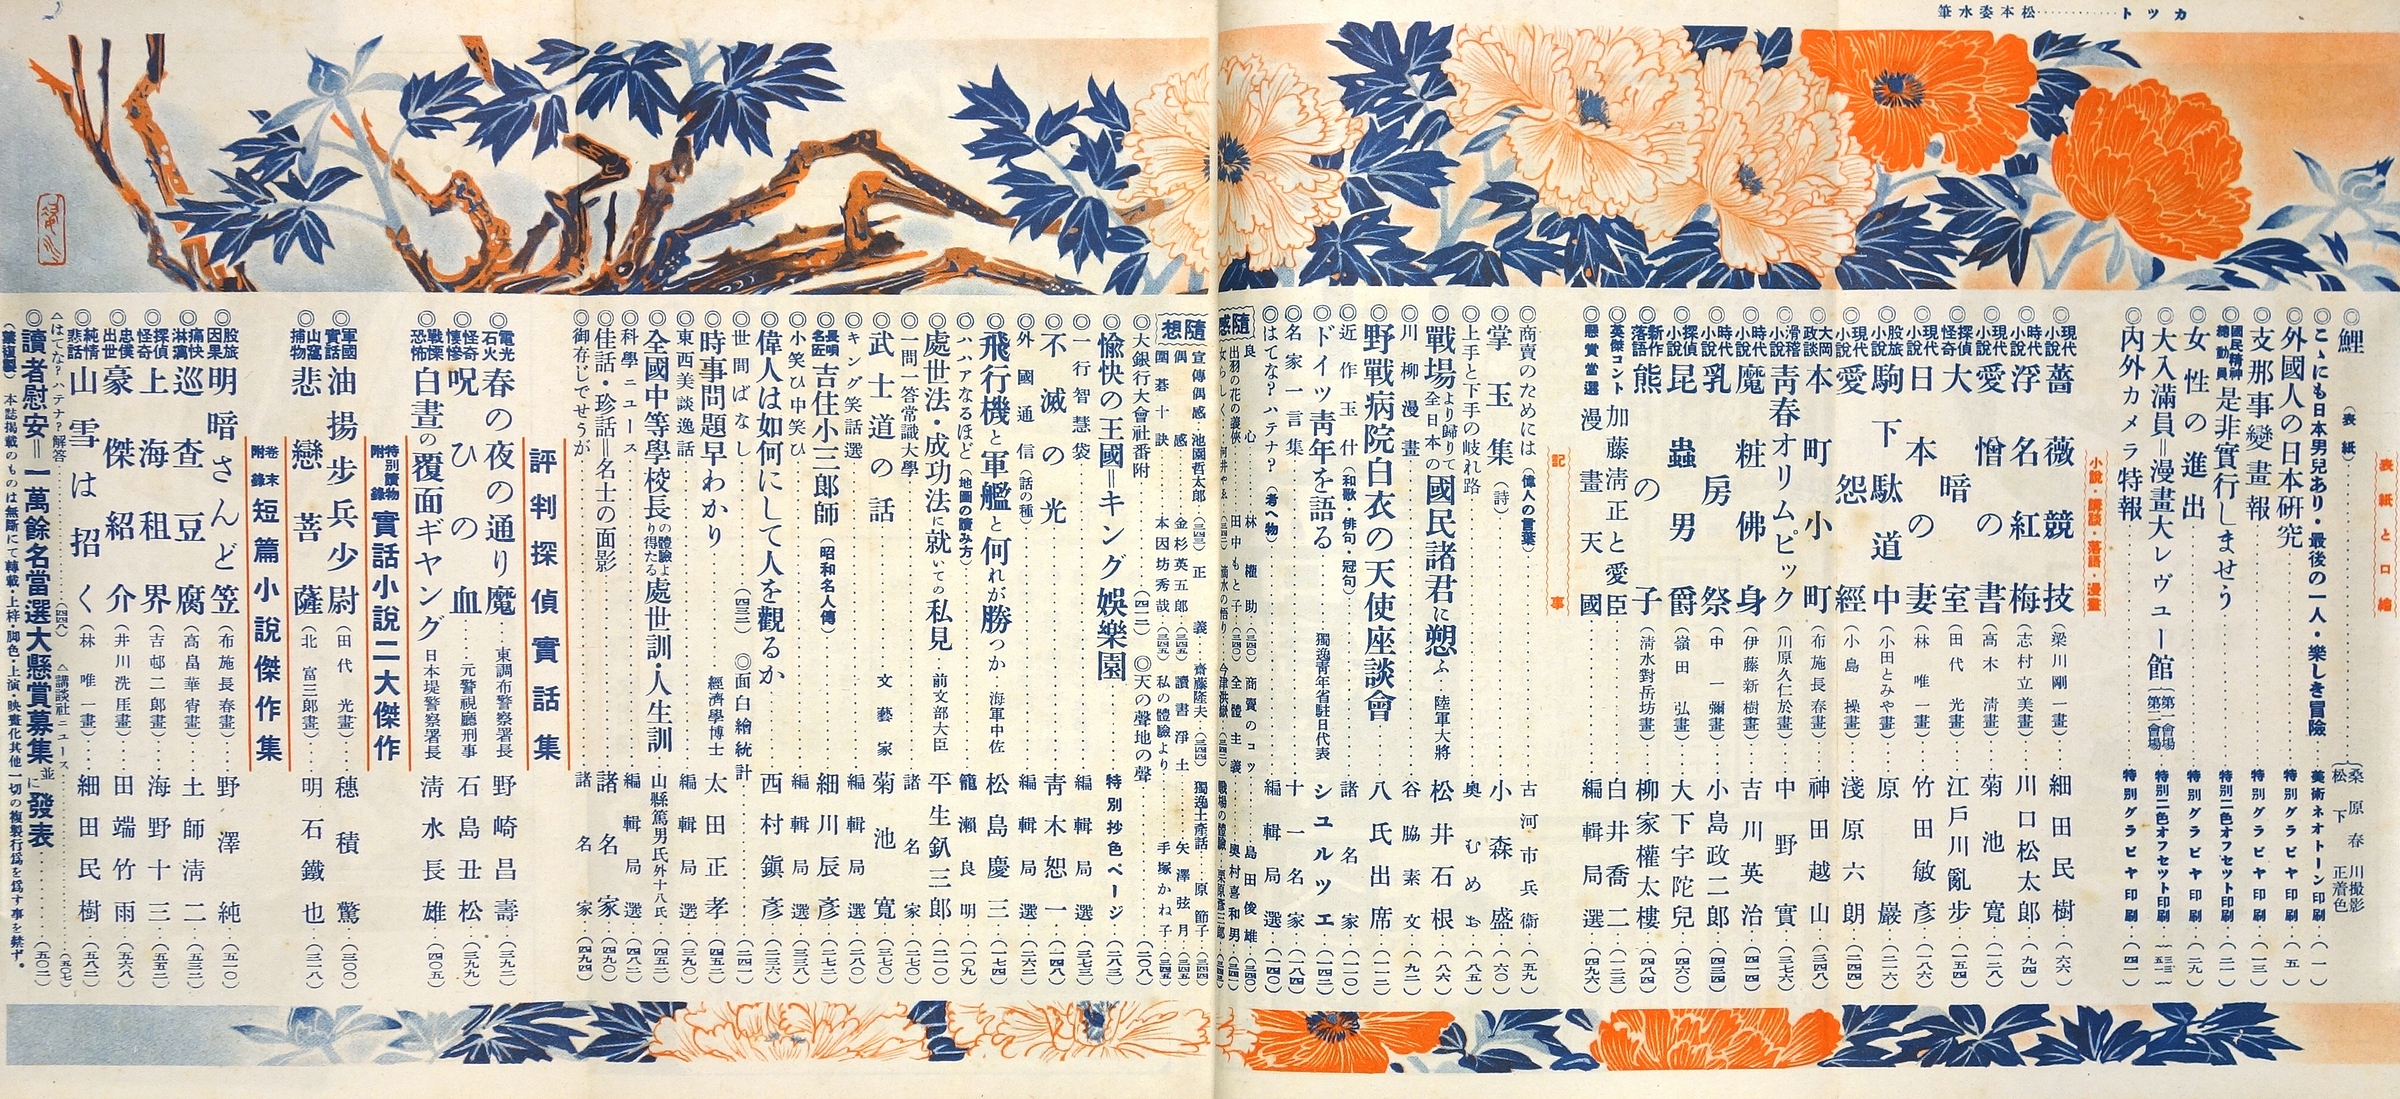 カット………松本姿水筆
表紙と口繪
◎鯉（表紙）……桑原春川撮影 松下正着色
◎こゝにも日本男兒あり・最後の一人・樂しき冒險……美術ネオトーン印刷…（一）
◎外國人の日本研究……特別グラビヤ印刷…（五）
◎支那事變畫報……特別グラビヤ印刷…（一三）
◎國民精神總動員 是非實行しませう……特別二色オフセット印刷…（二一）
◎女性の進出……特別グラビヤ印刷…（二九）
◎大入滿員＝漫畫大レヴュー館（第一會場 第二會場）…特別二色オフセット印刷
◎內外カメラ特報……特別グラビヤ印刷…（四一）
小說・講談・落語・漫畫
◎現代小說 薔薇競技（梁川剛一畫）…細田民樹…（六六）
◎時代小說 浮名紅梅（志村立美畫）…川口松太郎…（九四）
◎現代小說 愛憎の書（高木淸畫）…菊池寬…（一二八）
◎探偵怪奇 大暗室（田代光畫）…江戶川亂步…（一五四）
◎現代小說 日本の妻（林唯一畫）…竹田敏彥…（一八六）
◎股旅小說 駒下駄道中（小田とみや畫）…原巖…（二一六）
◎現代小說 愛怨經（小島操畫）…淺原六朗…（二四四）
◎大岡政談 本町小町（布施長春畫）…神田越山…（三四八）
◎滑稽小說 靑春オリムピック（川原久仁於畫）…中野實…（三七六）
◎時代小說 魔粧佛身（伊藤新樹畫）…吉川英治…（四一四）
◎時代小說 乳房祭（中一彌畫）…小島政二郎…（四三四）
◎探偵小說 昆蟲男爵（嶺田弘畫）…大下宇陀兒…（四六〇）
◎新作落語 熊の子（淸水對岳坊畫）…柳家權太樓…（四八四）
◎英傑コント 加藤淸正と愛臣…白井喬二…（一二三）
◎懸賞當選 漫畫天國…編輯局選…（四九六）
記事
◎商賣のためには（偉人の言葉）…古河市兵衞…（五九）
◎掌玉集（詩）…小森盛…（六〇）
◎上手と下手の岐れ路…奧むめお…（八五）
◎戰場より歸りて全日本の國民諸君に愬ふ…陸軍大將 松井石根…（八六）
◎川柳漫畫…谷脇素文…（九二）
◎野戰病院白衣の天使座談會…八氏出席…（一一二）
◎近作玉什（和歌・俳句・冠句）…諸名家…（一一〇）
◎ドイツ靑年を語る…獨逸靑年省駐日代表 シュルツェ…（一四二）
◎名家一言集…十一名家…（一八四）
◎はてな？ハテナ？（考へ物）…編輯局選…（一四〇）
隨感
良心…林權助…（三四〇） 商賣のコツ…島田俊雄…（三四〇）
出羽の花の義俠…田中もと子…（三四〇） 全體主義…奧村喜和男
隨想
宣傳偶感…池園哲太郎 正義…齋藤隆夫 獨逸土產話…原節子
偶感…金杉英五郎 讀書淨土…矢澤弦月
圍碁十訣…本因坊秀哉 私の體驗より…手塚かね子
◎大銀行大會社番附…（四二） ◎天の聲地の聲…（二〇八）
◎愉快の王國＝キング娛樂園…特別抄色ページ…（二八三）
◎一行智慧袋…編輯局選…（三七三）
◎不滅の光…靑木恕一…（一四八）
◎外國通信（話の種）…編輯局選…（二六二）
◎飛行機と軍艦と何れが勝つか…海軍中佐 松島慶三…（一七四）
◎ハハアなるほど（地圖の讀み方）…籠瀨良明…（一〇九）
◎處世法・成功法に就いての私見…前文部大臣 平生釟三郎…（二一〇）
◎一問一答常識大學…諸名家
◎武士道の話…文藝家 菊池寬…（三七〇）
◎キング笑話選…編輯局選…（二八〇）
◎長唄名匠 吉住小三郎師（昭和名人傳）…細川辰彥…（二七二）
◎小笑ひ中笑ひ…編輯局選
◎偉人は如何にして人を觀るか…西村鎭彥…（二三六）
◎世間ばなし…（四三） ◎面白繪統計…（二四一）
◎時事問題早わかり…經濟學博士 太田正孝…（四五二）
◎東西美談逸話…編輯局選…（三九〇）
◎全國中等學校長の體驗より得たる處世訓・人生訓…山縣篤男氏外十八氏…（四五二）
◎科學ニュース…編輯局選…（四八二）
◎佳話・珍話＝名士の面影…諸名家…（四九〇）
◎御存じでせうが…諸名家…（四九四）
評判探偵實話集
◎電光石火 春の夜の通り魔…東調布警察署長 野崎昌壽…（三九二）
◎怪奇悽慘 呪ひの血…元警視廳刑事 石島丑松…（三九九）
◎戰慄恐怖 白晝の覆面ギヤング…日本堤警察署長 淸水長雄…（四〇五）
特別讀物附錄 實話小說二大傑作
◎軍國實話 油揚步兵少尉（田代光畫）…穗積驚…（三〇〇）
◎山窩捕物 悲戀菩薩（北富三郎畫）…明石鐵也…（三一八）
卷末附錄 短篇小說傑作集
◎股旅因果 明暗さんど笠（布施長春畫）…野澤純…（五一〇）
◎痛快淋漓 巡査豆腐（高畠華宵畫）…土師淸二…（五三二）
◎探偵怪奇 上海租界（吉邨二郎畫）…海野十三…（五五二）
◎忠僕出世 豪傑紹介（井川洗厓畫）…田端竹雨…（五六八）
◎純情悲話 山雪は招く（林唯一畫）…細田民樹…（五八二）
△はてな？ハテナ？解答…（四四八） △講談社ニュース…（五〇七）
◎讀者慰安＝一萬餘名當選大懸賞募集並に發表…（五〇二）
（禁複製）本誌揭載のものは無斷にて轉載・上梓・脚色・上演・映畫化其他一切の複製行爲を爲す事を禁ず。